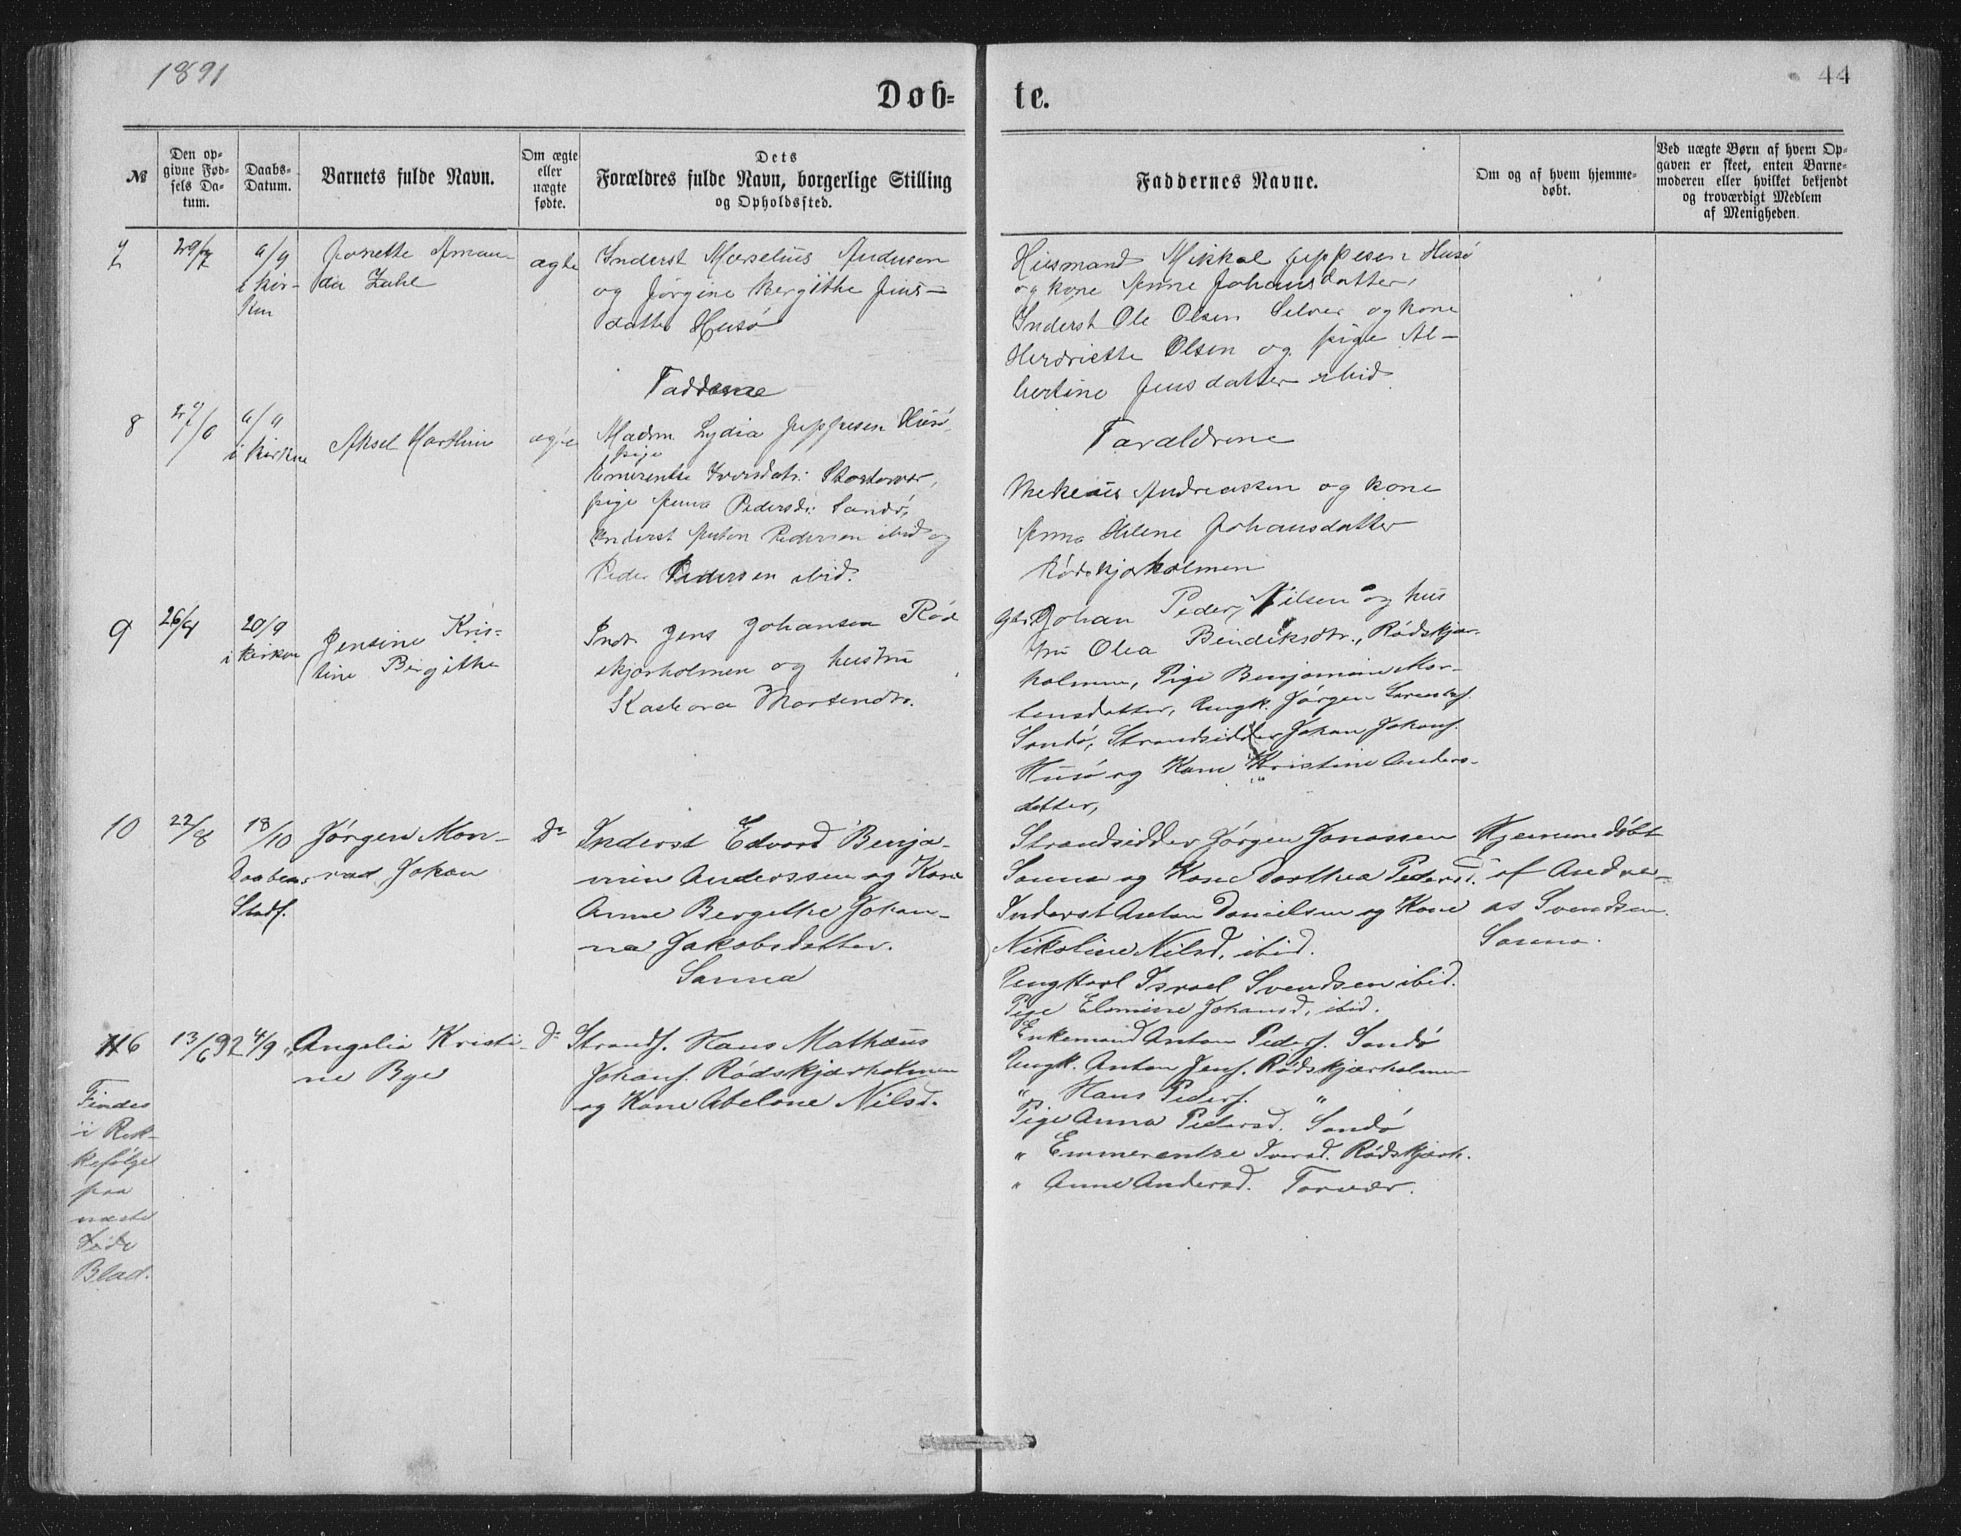 1891
44
Døb=
te.
№
Den op-
givne Fød-
sels Da-
tum.
Daabs-
Datum.
Barnets fulde Navn.
Om ægte
eller
uægte
fødte.
Dets
Forældres fulde Navn, borgerlige Stilling
og Opholdssted.
Faddernes Navne.
Om og af hvem hjemme-
døbt.
Ved uægte Børn af hvem Op-
gaven er skeet, enten Barne-
moderen eller hvilket bekjendt
og troværdigt Medlem
af Menigheden.
7
29/7
6/9
i kir-
ken
Jonette Aman-
da Zahl
ægte
Inderst Marselius Andersen
og Jørgine Bergithe Jens-
datter Husø
Husmand Mikkal Jeppesen Husø
og kone Anne Johansdatter,
Inderst Ole Olsen Selvær og kone
Hendriette Olsen og pige Al-
bertine Jensdatter ibid.
8
6/9
i kirkene
Aksel Marthin
ægte
Faddene
Madm. Lydia Jeppesen Husø,
pige
Emerentse Iversdatr.
pige Anna Pedersdr. Sandø,
Inderst Anton Pedersen ibid og
Peder Pedersen ibid.
Forældrene
Andreassen og kone
Anna Helene Johansdatter
Rødskjærholmen
9
26/8
20/9
i kirken
Jensine Kris=
tine Bergithe
Indr. Jens Johansen Rød
skjærholmen og hustru
Mortensdr.
Gbr. Johan Peder Nilsen og hus
tru Olea Bendiksdtr., Rødskjær-
holmen, Pige Benjamine Mor-
tensdatter, Ungk. Jørgen Sørensf.
Sandø, Strandsidder Johan Johans.
Husø og Kone Kristine Anders-
datter,
10
22/8
18/10
Daaben
Stadf.
Jørgen Mon-
rad Johan
Do
Inderst Edvard Benja-
min Anderssen og Kone
Anne Bergithe Johan-
na Jakobsdatter.
Sanna
Strandsidder Jørgen Jonassen
Sanna og Kone Dorthea Pedersd.
Inderst Anton Danielsen og Kone
Nikoline Nilsd. ibid.
Ungkarl Israel Svendsen ibid.
Pige Elomine Johansd. ibid.
Hjemmedøbt
af Andre-
as Svendsen
Sanna.
6
13/6 92
4/9
Angelia Kristi-
ne Bye
Do
Strands. Hans Mathæus
Johans. Rødskjærholmen
og Kone Abelone Nilsd.
Enkemand Anton Peders. Sandø
Ungk. Anton Jens. Rødskjærholmen
" Hans Peders. "
Pige Anna Pedersd. Sandø
" Emmerentze Iversd. Rødskjærh.
" Anne Andersd. Torvær.
Findes
i Ræk-
kefølge
paa
næste
Side
Blad.